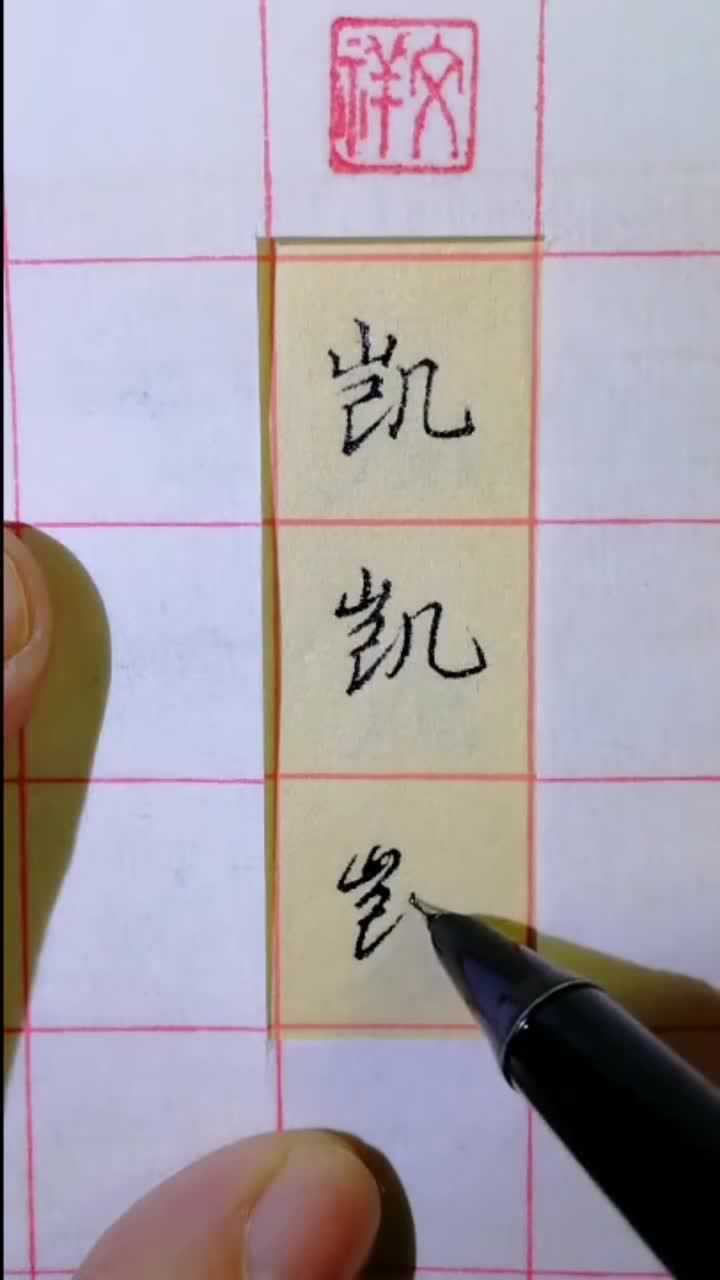 文祥
凯
凯
岂